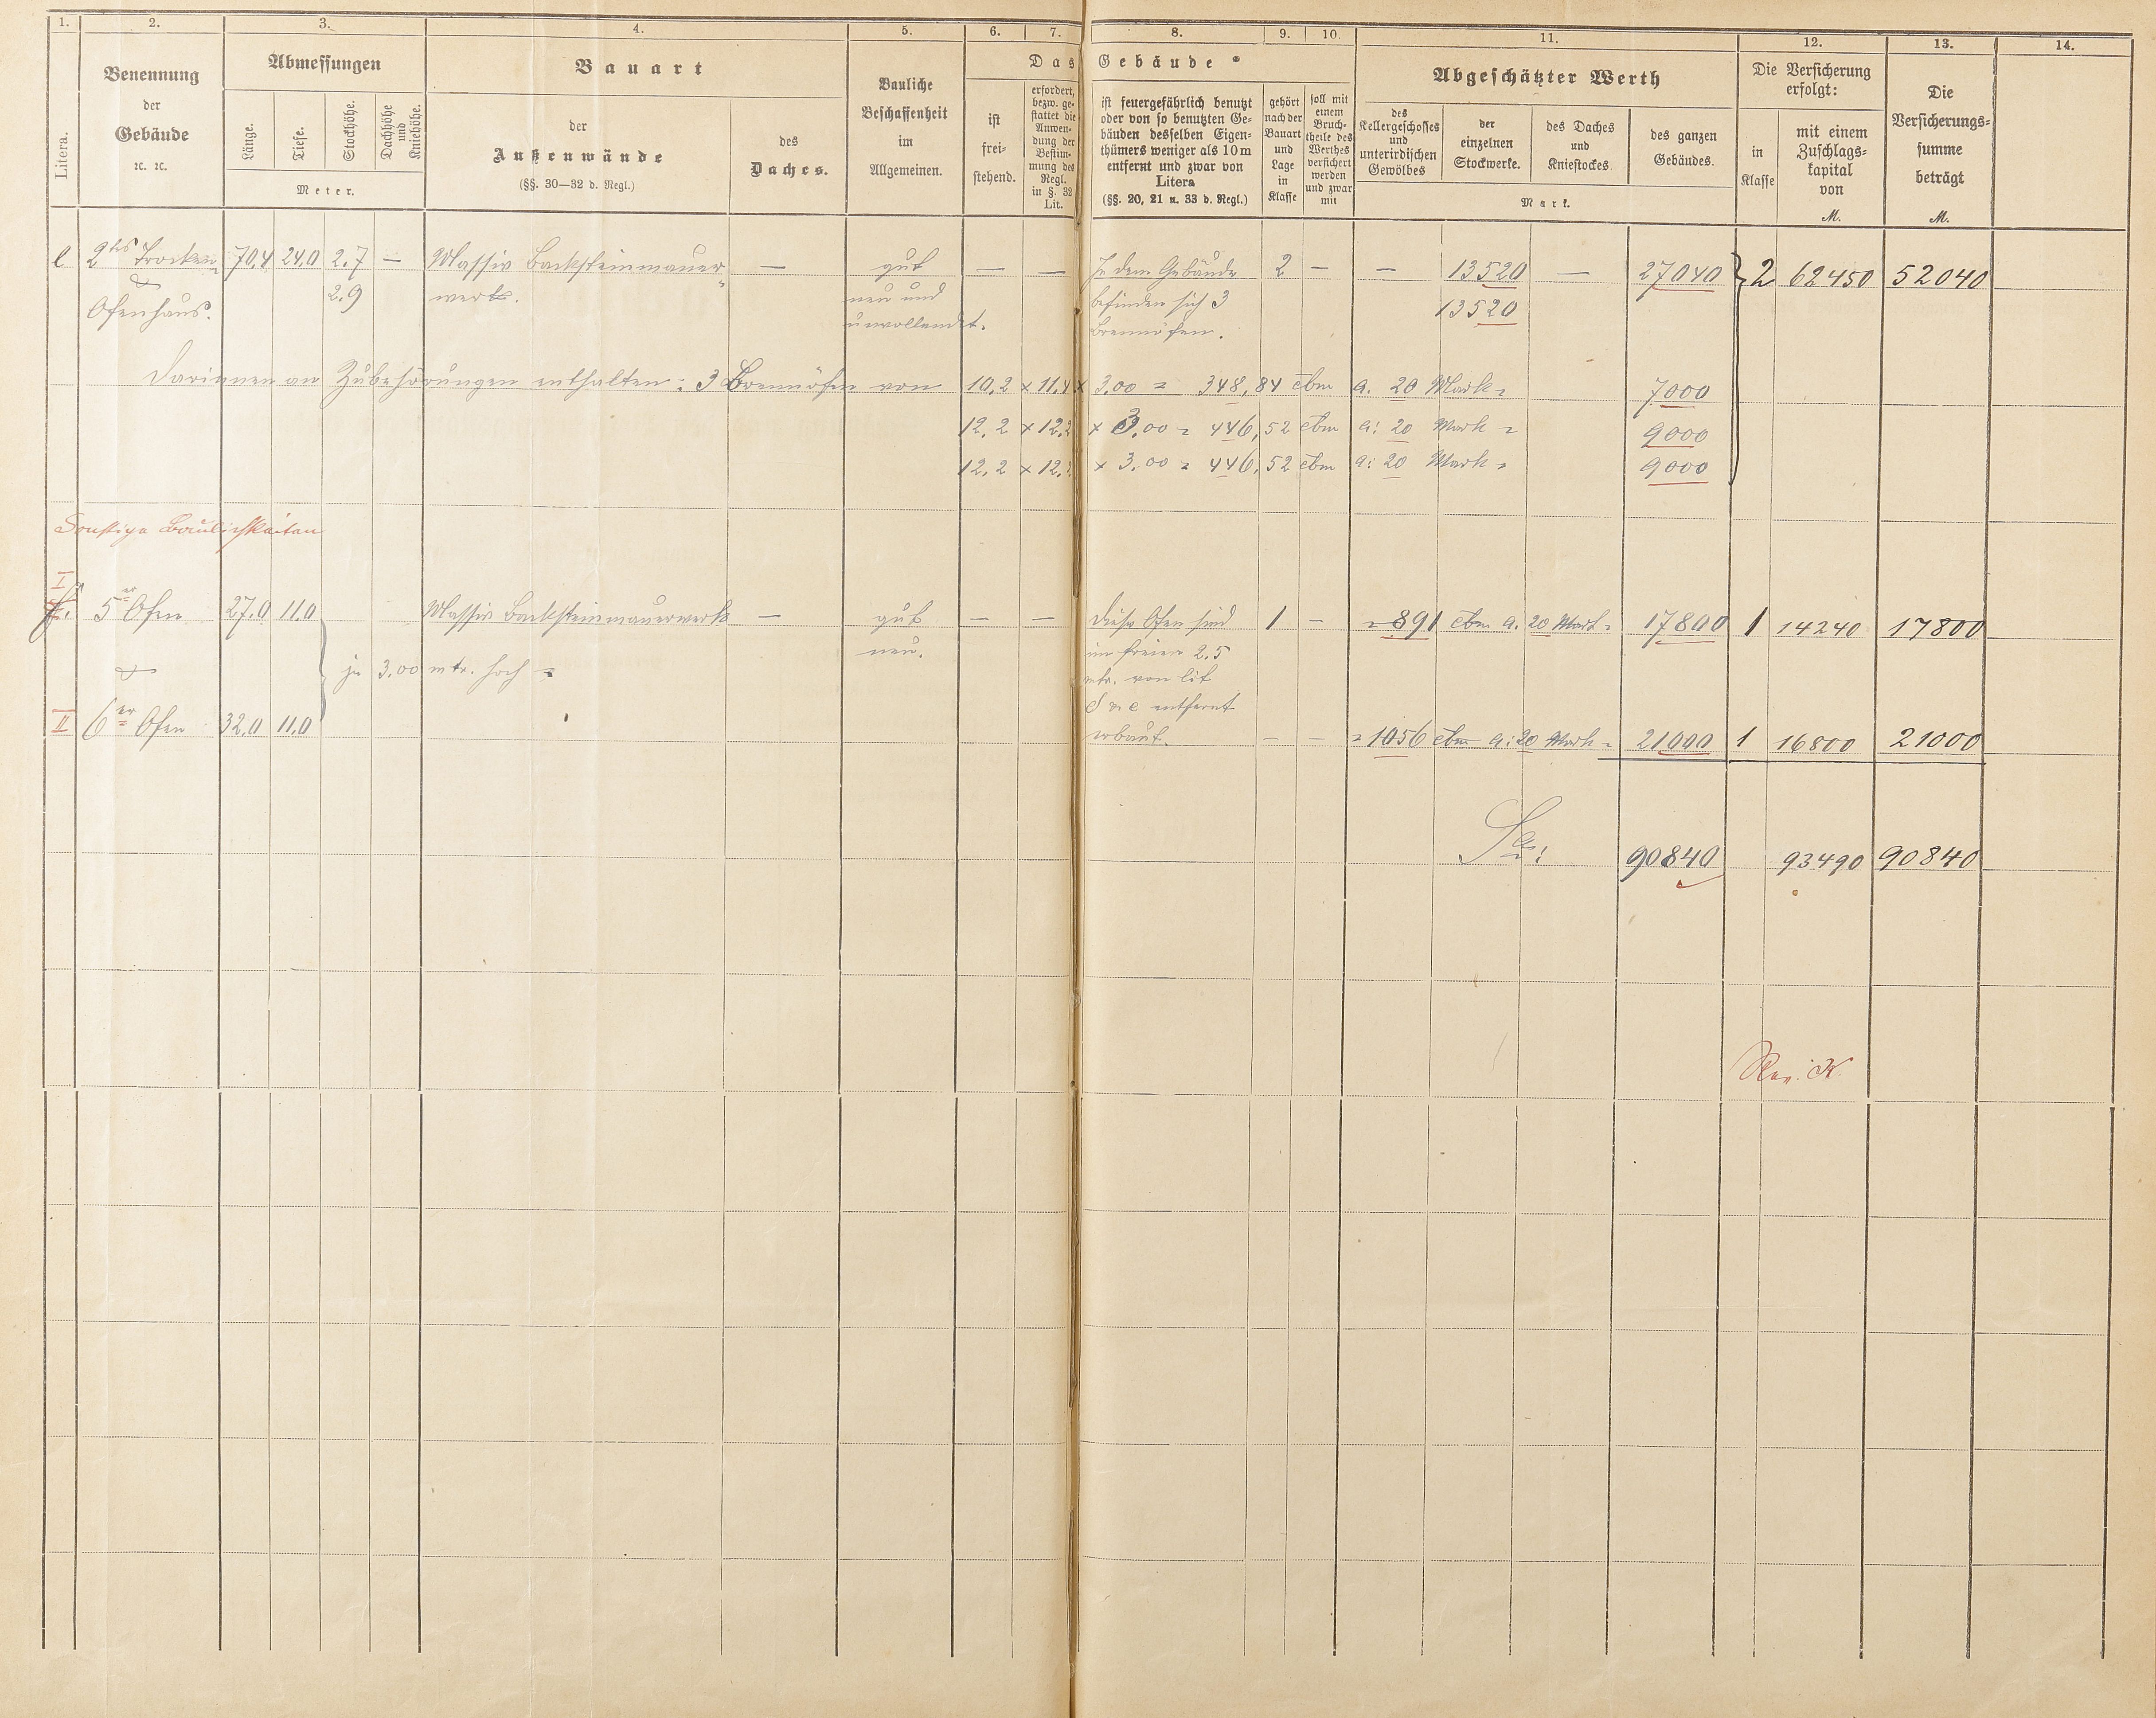 1. 2. 3. 4. 5. 6. 7. 8. 9. 10. 11. 12. 13. 14.
Litera.
Benennung
der
Gebäude
ꝛc. ꝛc.
Abmessungen
Länge. Tiefe. Stockhöhe. Dachhöhe und Kniehöhe.
Meter.
Bauart
der
Außenwände
(§§. 30—32 d. Regl.)
des
Daches.
Bauliche
Beschaffenheit
im
Allgemeinen.
Das Gebäude *
ist
frei-
stehend.
erfordert,
bezw. ge-
stattet die
Anwen-
dung der
Bestim-
mung des
Regl.
in §. 32
Lit.
ist feuergefährlich benutzt
oder von so benutzten Ge-
bäuden desselben Eigen-
thümers weniger als 10 m
entfernt und zwar von
Litera
(§§. 20, 21 u. 33 d. Regl.)
gehört
nach der
Bauart
und
Lage
in
Klasse
soll mit
einem
Bruch-
theile des
Werthes
versichert
werden
und zwar
mit
Abgeschätzter Werth
des
Kellergeschosses
und
unterirdischen
Gewölbes
der
einzelnen
Stockwerke.
des Daches
und
Kniestockes.
des ganzen
Gebäudes.
Mark.
Die Versicherung
erfolgt:
in
Klasse
mit einem
Zuschlags-
kapital
von
M.
Die
Versicherungs-
summe
beträgt
M.
e 2tes Trocken- 70,4 24,0 2.7 — Massiv Backsteinmauer- — gut — — In dem Gebäude 2 — — 13520 — 27040 2 62450 52040
&
Ofenhaus. 2.9 werk. neu und befinden sich 3 13520
unvollendet. Brennöfen.
Darinnen an Zubehörungen enthalten: 3 Brennöfen von 10,2 × 11,4 × 3,00 = 348,84 cbm a. 20 Mark = 7000
12,2 × 12,2 × 3,00 = 446,52 cbm a: 20 Mark = 9000
12,2 × 12,2 × 3.00 = 446,52 cbm a: 20 Mark = 9000
Sonstige Baulichkeiten
I
f. 5er Ofen 27,0 11,0 Massiv Backsteinmauerwerk — gut — — Diese Öfen sind 1 — = 891 cbm a. 20 Mark = 17800 1 14240 17800
neu. im freien 2,5
& je 3,00 mtr. hoch = mtr. von lit
d & e entfernt
II 6er Ofen 32,0 11,0 erbaut. — — = 1056 cbm a: 20 Mark = 21000 1 16800 21000
Sa: 90840 93490 90840
Rev. K